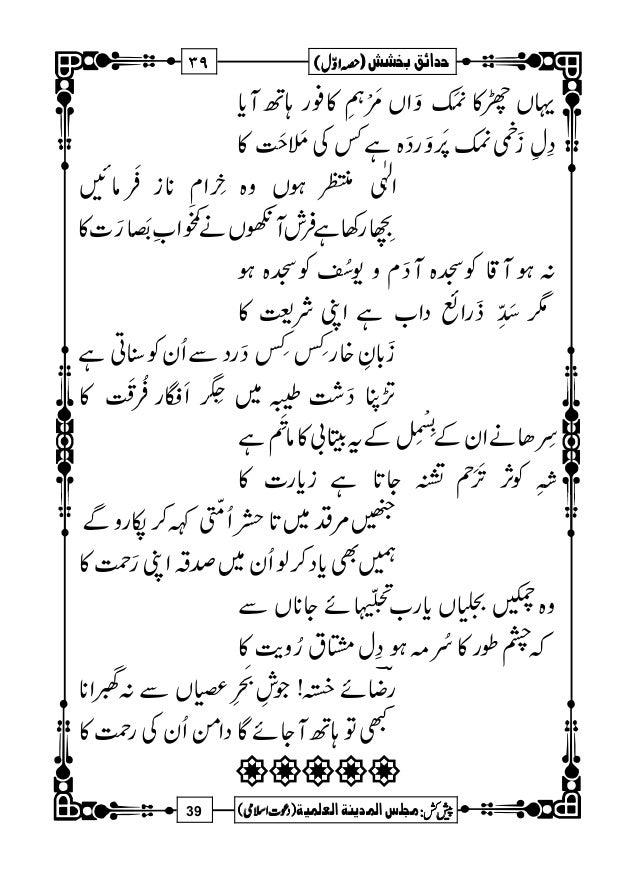 حدائق بخشش (حصہ اوّل)
۳۹
یہاں چھڑکا نمک وَاں مَرْہمِ کافور ہاتھ آیا
دِلِ زَخمی نمک پَروَردَہ ہے کس کی مَلاحَت کا
الٰہی منتظر ہوں وہ خِرامِ ناز فَرمائیں
بِچھا رکھا ہے فرش آنکھوں نے کمخوابِ بَصارَت کا
نہ ہو آقا کو سجدہ آدَم و یوسُف کو سجدہ ہو
مگر سَدِّ ذَرائع داب ہے اپنی شریعت کا
زَبانِ خار کِس کِس دَرد سے اُن کو سناتی ہے
تڑپنا دَشت طیبہ میں جِگر اَفگار فُرقَت کا
سِرھانے ان کے بِسْمِل کے یہ بیتابی کا ماتَم ہے
شہِ کوثر تَرَحم تشنہ جاتا ہے زیارت کا
جنھیں مرقد میں تا حشر اُمّتی کہہ کر پکارو گے
ہمیں بھی یاد کرلو اُن میں صدقہ اپنی رَحمت کا
وہ چمکیں بجلیاں یارب تجلّیہائے جاناں سے
کہ چشم طور کا سُرمہ ہو دِل مشتاق رُویت کا
رضائے خستہ! جوشِ بَحرِ عصیاں سے نہ گھبرانا
کبھی تو ہاتھ آجائے گا دامن اُن کی رحمت کا
پیش کش: مجلس المدینۃ العلمیۃ (دعوت اسلامی)
39